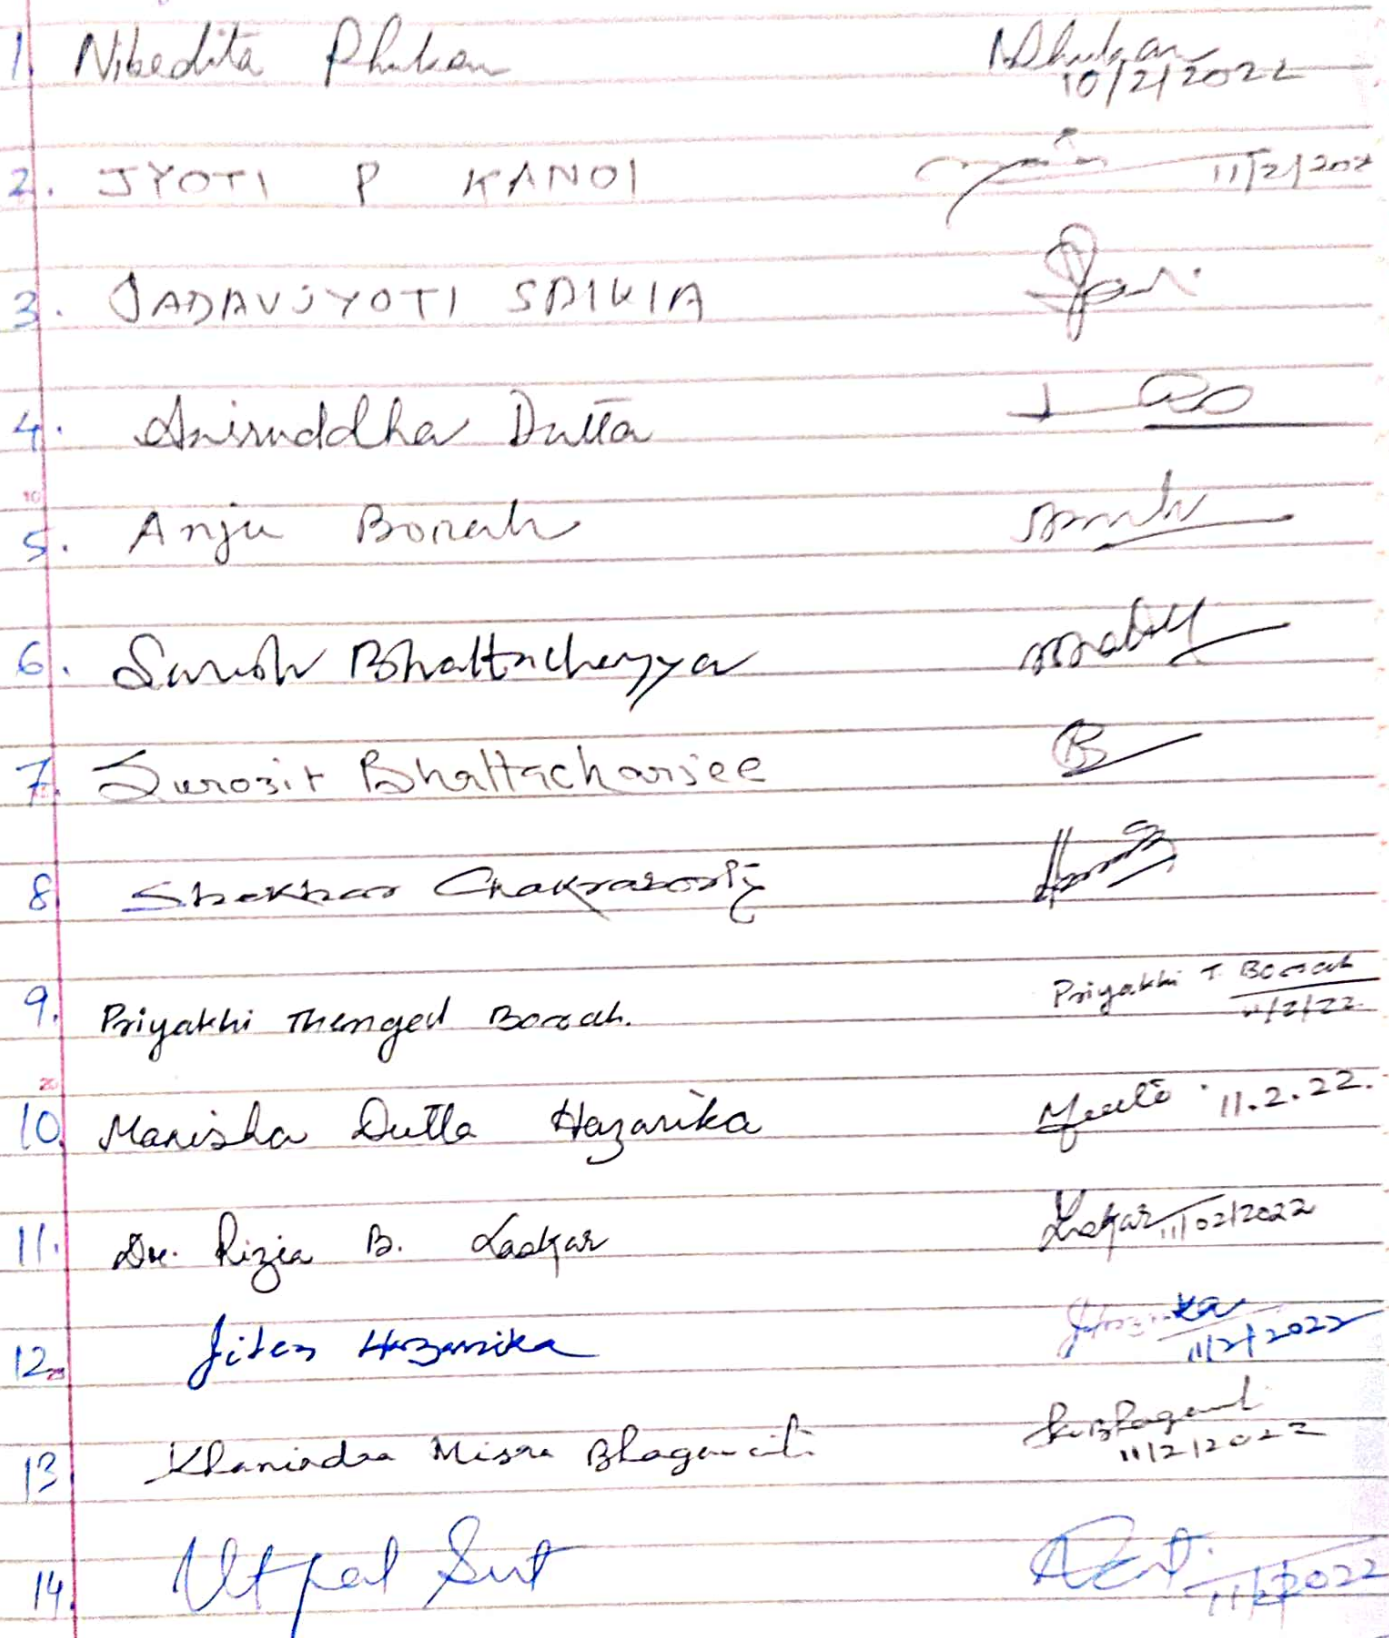 1. Nibedita Phukan NPhukan
10/2/2022
2. JYOTI P KANOI 11/2/202
3. JADAVJYOTI SAIKIA
4. Aniruddha Dutta
10
5. Anju Borah
6. Suresh Bhattacheryya
7. Surozit Bhattacharjee B
8 Shekhar Chakraborty
9. Priyakhi Thengal Borah. Priyakhi T. Borah
11/2/22
20
10. Manisha Dutta Hazarika 11.2.22.
11. Dr. Rizia B. Laskar Laskar 11/02/2022
12. Jiten Hazarika JHazarika
25 11/2/2022
13 Khanindra Misra Bhagawati KBhagawati
11/2/2022
14. Utpal Sut 11/2/2022